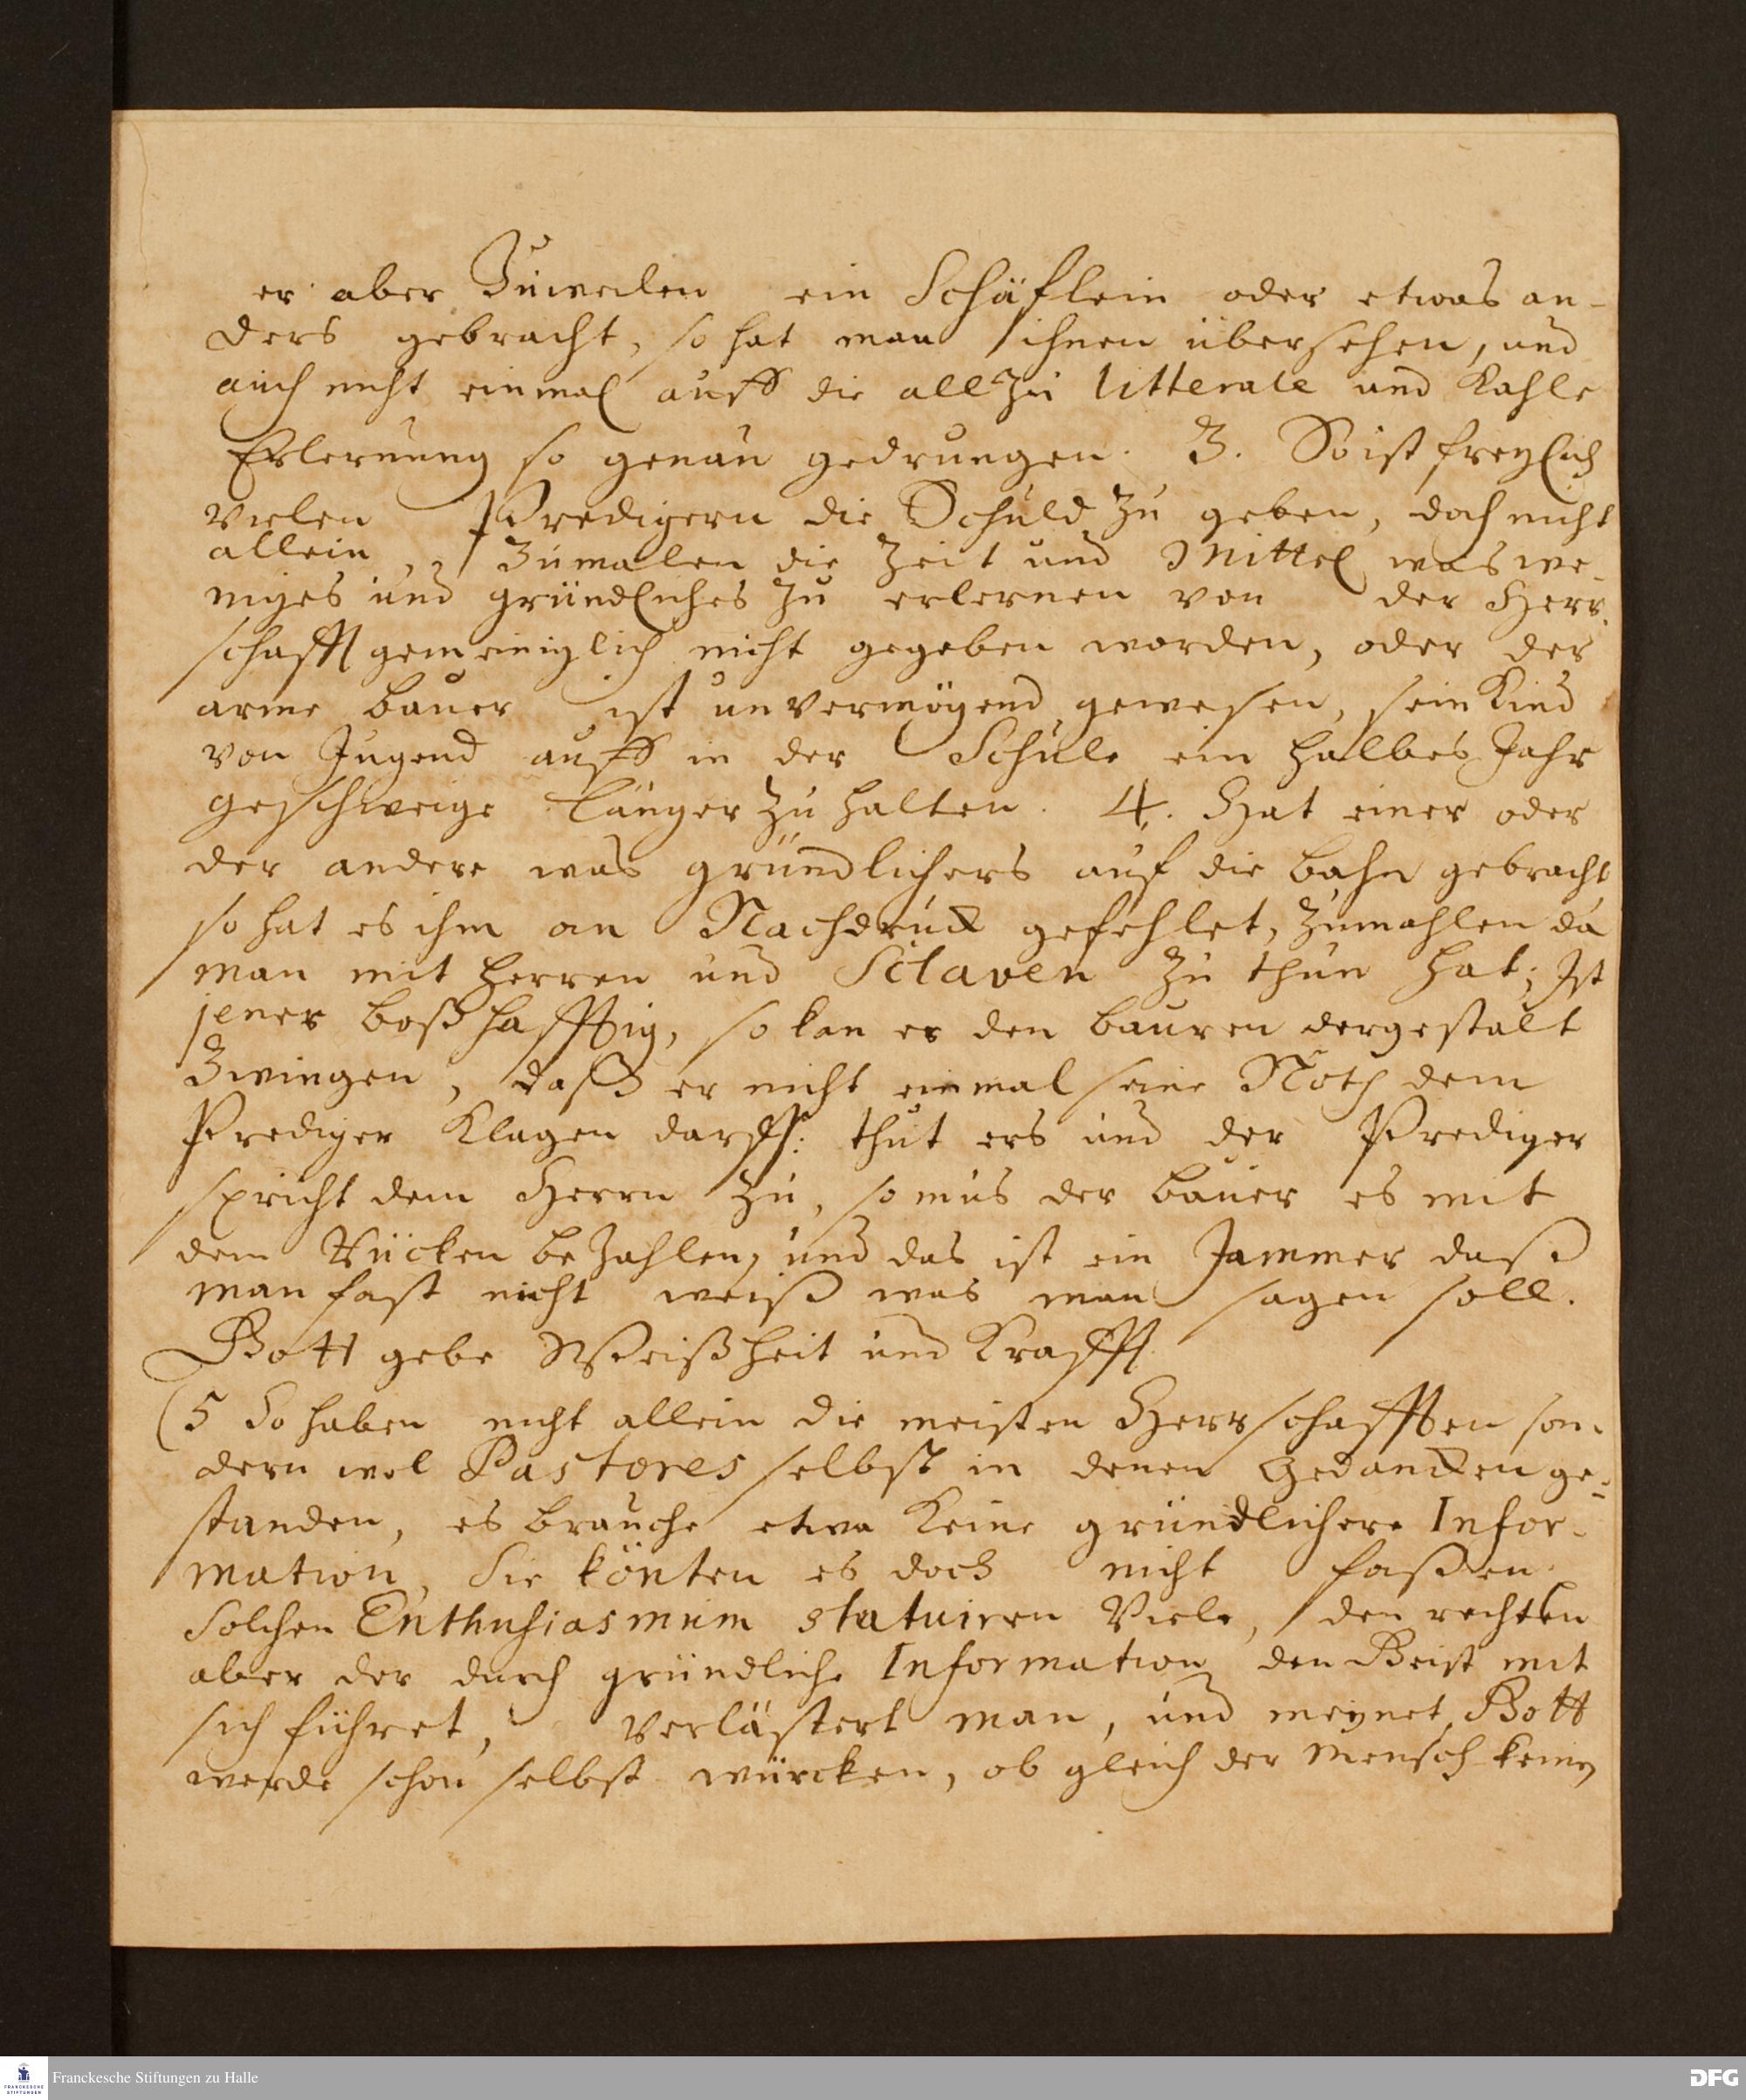 er aber Zuweilen ein Schäflein oder etwas an-
ders gebracht, so hat man ihnen übersehen, und
auch nicht einmal auff die allzu litterale und Kahle
Erlernung so genau gedrungen. 3. So ist freylich
vielen Predigern die Schuld zu geben, doch nicht
allein, Zumalen die Zeit und Mittel was we-
niges und gründliches zu erlernen von der Herr-
schafft gemeiniglich nicht gegeben worden, oder der
arme bauer ist unvermögend gewesen, sein Kind
von Jugend auff in der Schule ein halbes Jahr
geschweige länger zu halten. 4. Hat einer oder
der andere was gründlichers auf die bahn gebracht
so hat es ihm an Nachdruck gefehlet, Zumahlen da
man mit Herren und Sclaven zu thun hat; Ist
jener boßhafftig, so kan er den bauren dergestalt
Zwingen, daß er nicht einmal seine Noth dem
Prediger Klagen darff: thut ers und der Prediger
spricht dem Herrn zu, so mus der bauer es mit
dem Rücken beZahlen, und das ist ein Jammer daß
man fast nicht weiß was man sagen soll.
Gott gebe Weißheit und Krafft
(5 So haben nicht allein die meisten Herrschafften son-
dern wol Pastores selbst in denen Gedancken ge-
standen, es brauche etwa Keine gründlichere Infor-
mation, Sie könten es doch nicht faßen.
Solchen Enthusiasmum statuiren Viele, den rechten
aber der durch gründliche Information den Geist mit
sich führet, verlästert man, und meynet Gott
werde schon selbst würcken, ob gleich der Mensch keine
Franckesche Stiftungen zu Halle
DFG